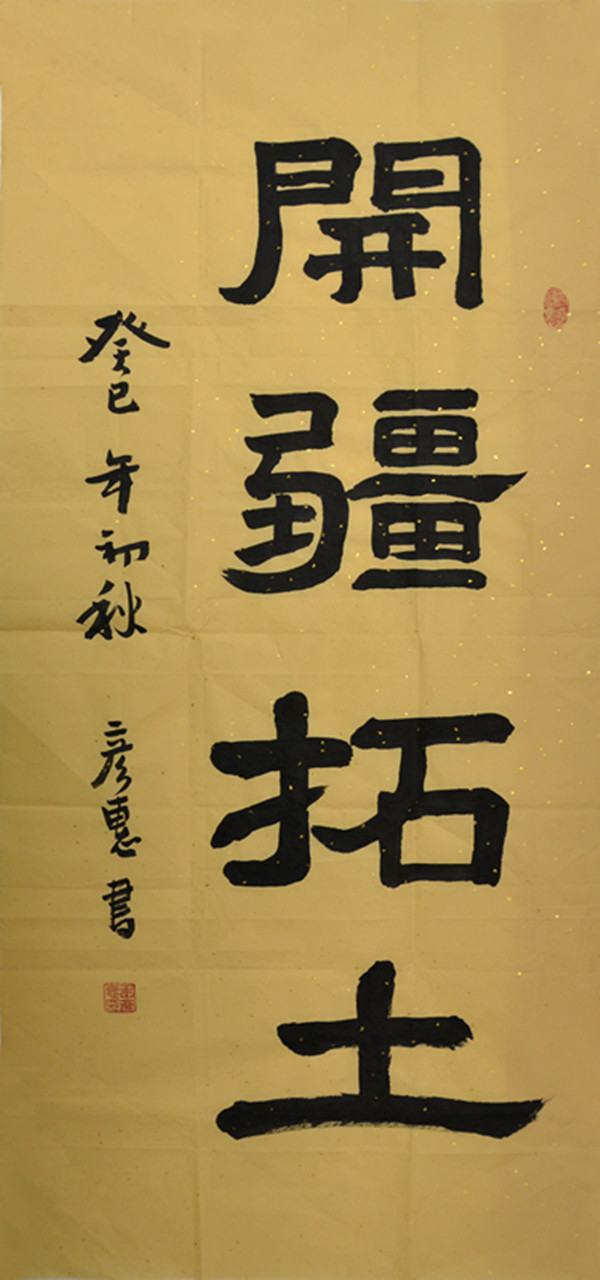 開疆拓土
癸巳年初秋 彦惠書